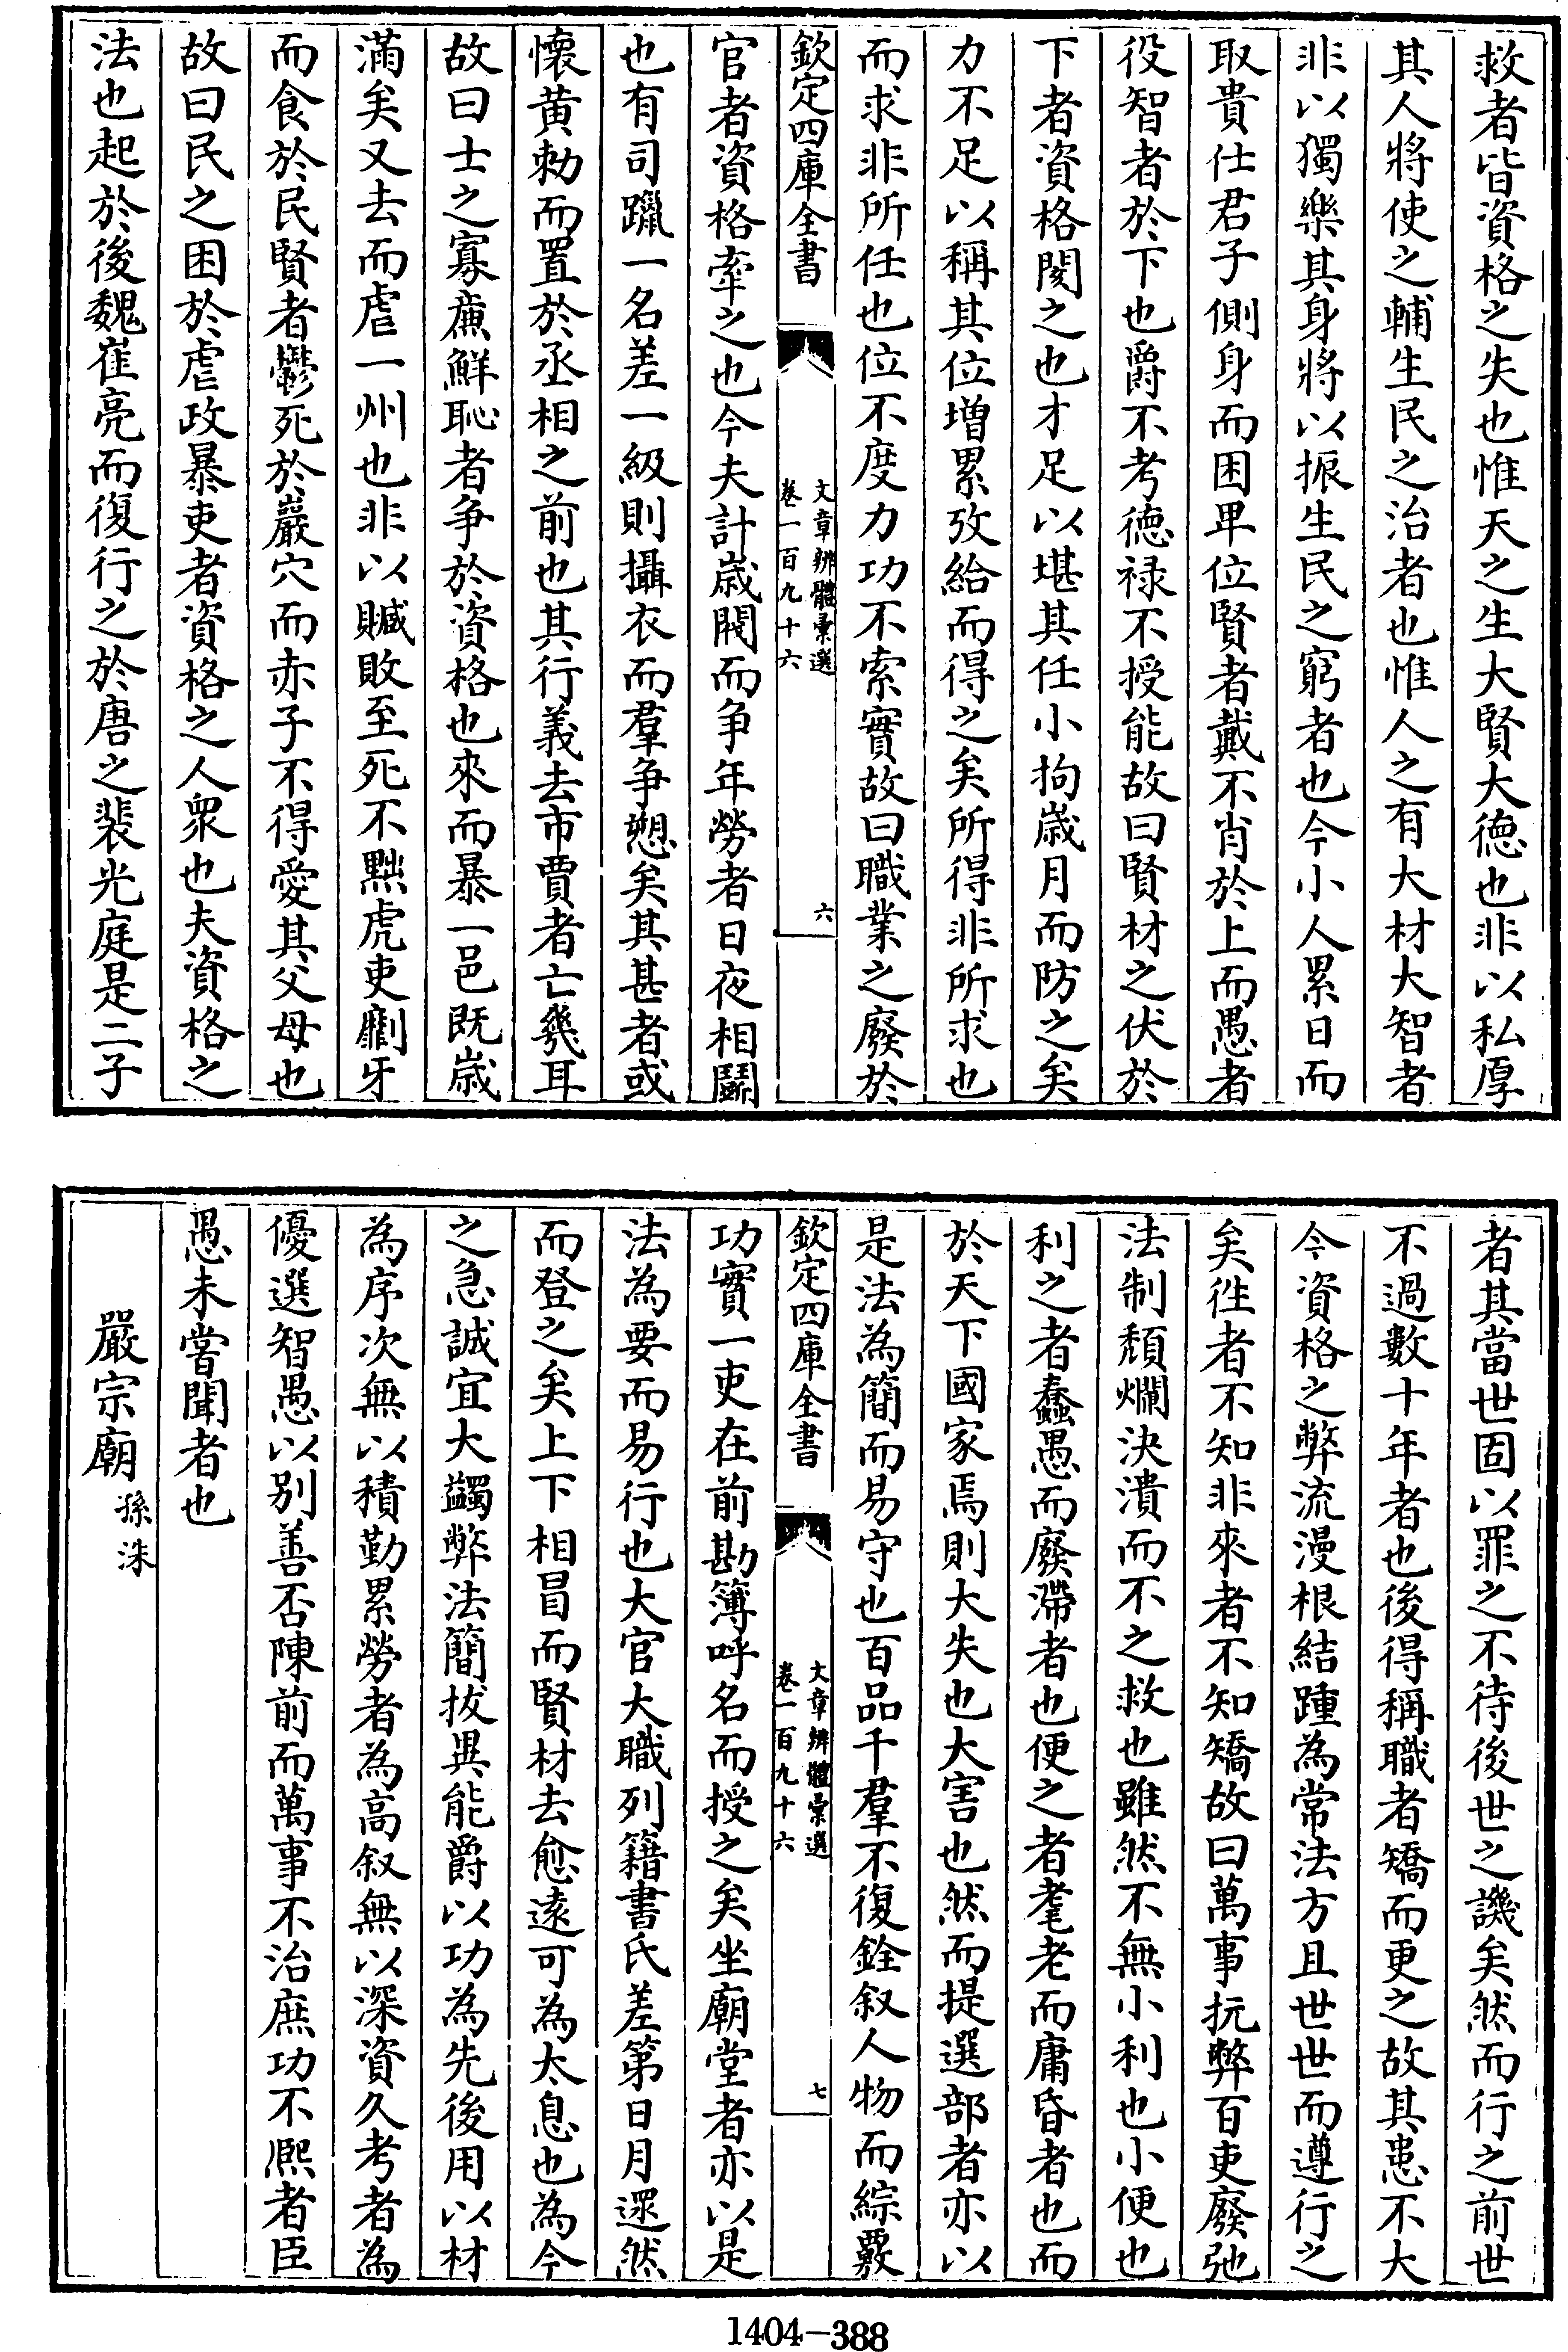 救者皆資格之失也惟天之生大賢大德也非以私厚
其人將使之輔生民之治者也惟人之有大材大智者
非以獨樂其身將以振生民之窮者也今小人累日而
取貴仕君子側身而困卑位賢者戴不肖於上而愚者
役智者於下也爵不考德禄不授能故曰賢材之伏於
下者資格閡之也才足以堪其任小拘歳月而防之矣
力不足以稱其位增累攷給而得之矣所得非所求也
而求非所任也位不度力功不索實故曰職業之廢於
欽定四庫全書
文章辨體彙選
卷一百九十六
六
官者資格牽之也今夫計歳閥而争年勞者日夜相鬭
也有司躐一名差一級則攝衣而羣争愬矣其甚者或
懐黄勅而置於丞相之前也其行義去市賈者亡幾耳
故曰士之寡亷鮮恥者争於資格也來而暴一邑既歳
滿矣又去而虐一州也非以贓敗至死不黜虎吏劘牙
而食於民賢者鬱死於巖穴而赤子不得愛其父母也
故曰民之困於虐政暴吏者資格之人衆也夫資格之
法也起於後魏崔亮而復行之於唐之裴光庭是二子
者其當世固以罪之不待後世之譏矣然而行之前世
不過數十年者也後得稱職者矯而更之故其患不大
今資格之弊流漫根結踵為常法方且世世而遵行之
矣徃者不知非來者不知矯故曰萬事抏弊百吏廢弛
法制頽爛決潰而不之救也雖然不無小利也小便也
利之者蠢愚而廢滯者也便之者耄老而庸昏者也而
於天下國家焉則大失也大害也然而提選部者亦以
是法為簡而易守也百品千羣不復銓叙人物而綜覈
欽定四庫全書
文章辨體彙選
卷一百九十六
七
功實一吏在前勘簿呼名而授之矣坐廟堂者亦以是
法為要而易行也大官大職列籍書氏差第日月遝然
而登之矣上下相冒而賢材去愈逺可為太息也為今
之急誠宜大蠲弊法簡拔異能爵以功為先後用以材
為序次無以積勤累勞者為高叙無以深資久考者為
優選智愚以别善否陳前而萬事不治庶功不熈者臣
愚未嘗聞者也
嚴宗廟 孫洙
1404-388